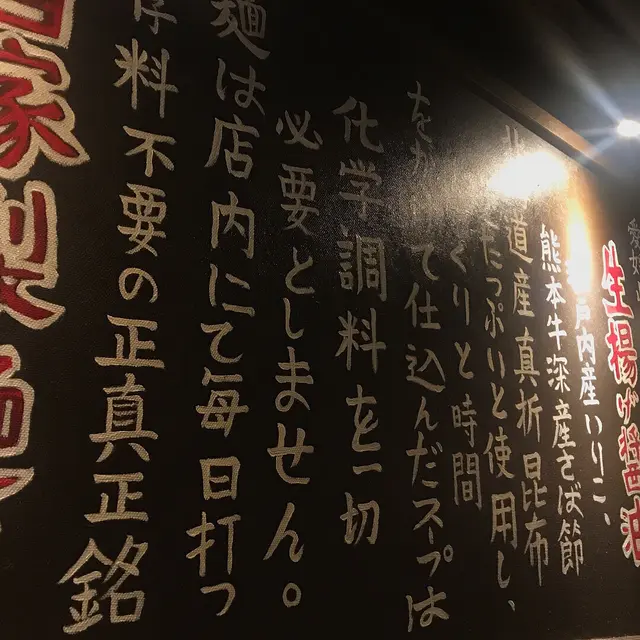 生揚げ醤油
戸内産いりこ、
熊本牛深産さば節
道産真折昆布
たっぷりと使用し、
くりと時間
をか て仕込んだスープは
化学調料を一切
必要としません。
麺は店内にて毎日打つ
存料不要の正真正銘
自家製麺